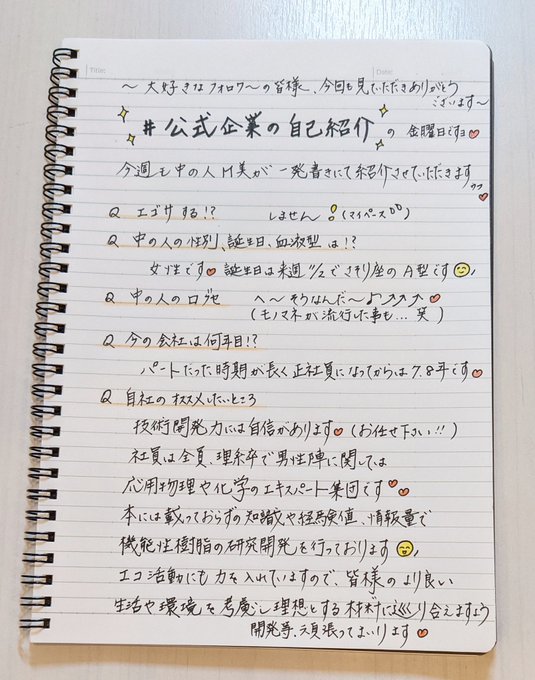 Title:
Date:
〜大好きなフォロワ〜の皆様、今回も見ていただきありがとう
ございます〜
#公式企業の自己紹介 の 金曜日ですヨ
今週も中の人M美が一発書きにて紹介させていただきます
Q エゴサする!?
しません! (マイペース)
Q 中の人の性別、誕生日、血液型は!?
女性です 誕生日は来週11/2でさそり座のA型です
Q 中の人のログセ
へ〜そうなんだ〜♪↗↗↗
(モノマネが流行した事も… 笑)
Q 今の会社は何年目!?
パートだった時期が長く正社員になってからは7.8年です
Q 自社のオススメしたいところ
技術開発力には自信があります (お任せ下さい!!)
社員は全員、理系卒で男性陣に関しては
応用物理や化学のエキスパート集団です
本には載っておらずの知識や経験値、情報量で
機能性樹脂の研究開発を行っております
エコ活動にも力を入れていますので、皆様のより良い
生活や環境を考慮し理想とする材料に巡り合えますよう
開発等、頑張ってまいります